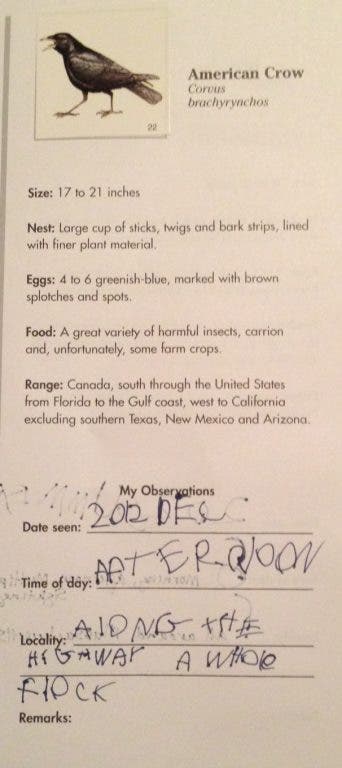 22
American Crow
Corvus
brachyrynchos
Size: 17 to 21 inches
Nest: Large cup of sticks, twigs and bark strips, lined
with finer plant material.
Eggs: 4 to 6 greenish-blue, marked with brown
splotches and spots.
Food: A great variety of harmful insects, carrion
and, unfortunately, some farm crops.
Range: Canada, south through the United States
from Florida to the Gulf coast, west to California
excluding southern Texas, New Mexico and Arizona.
My Observations
Date seen: 2012 DEC
Time of day: AFTERNOON
Locality: AlONG tHE
HIGAWAY A WHOlE
FlOCK
Remarks: